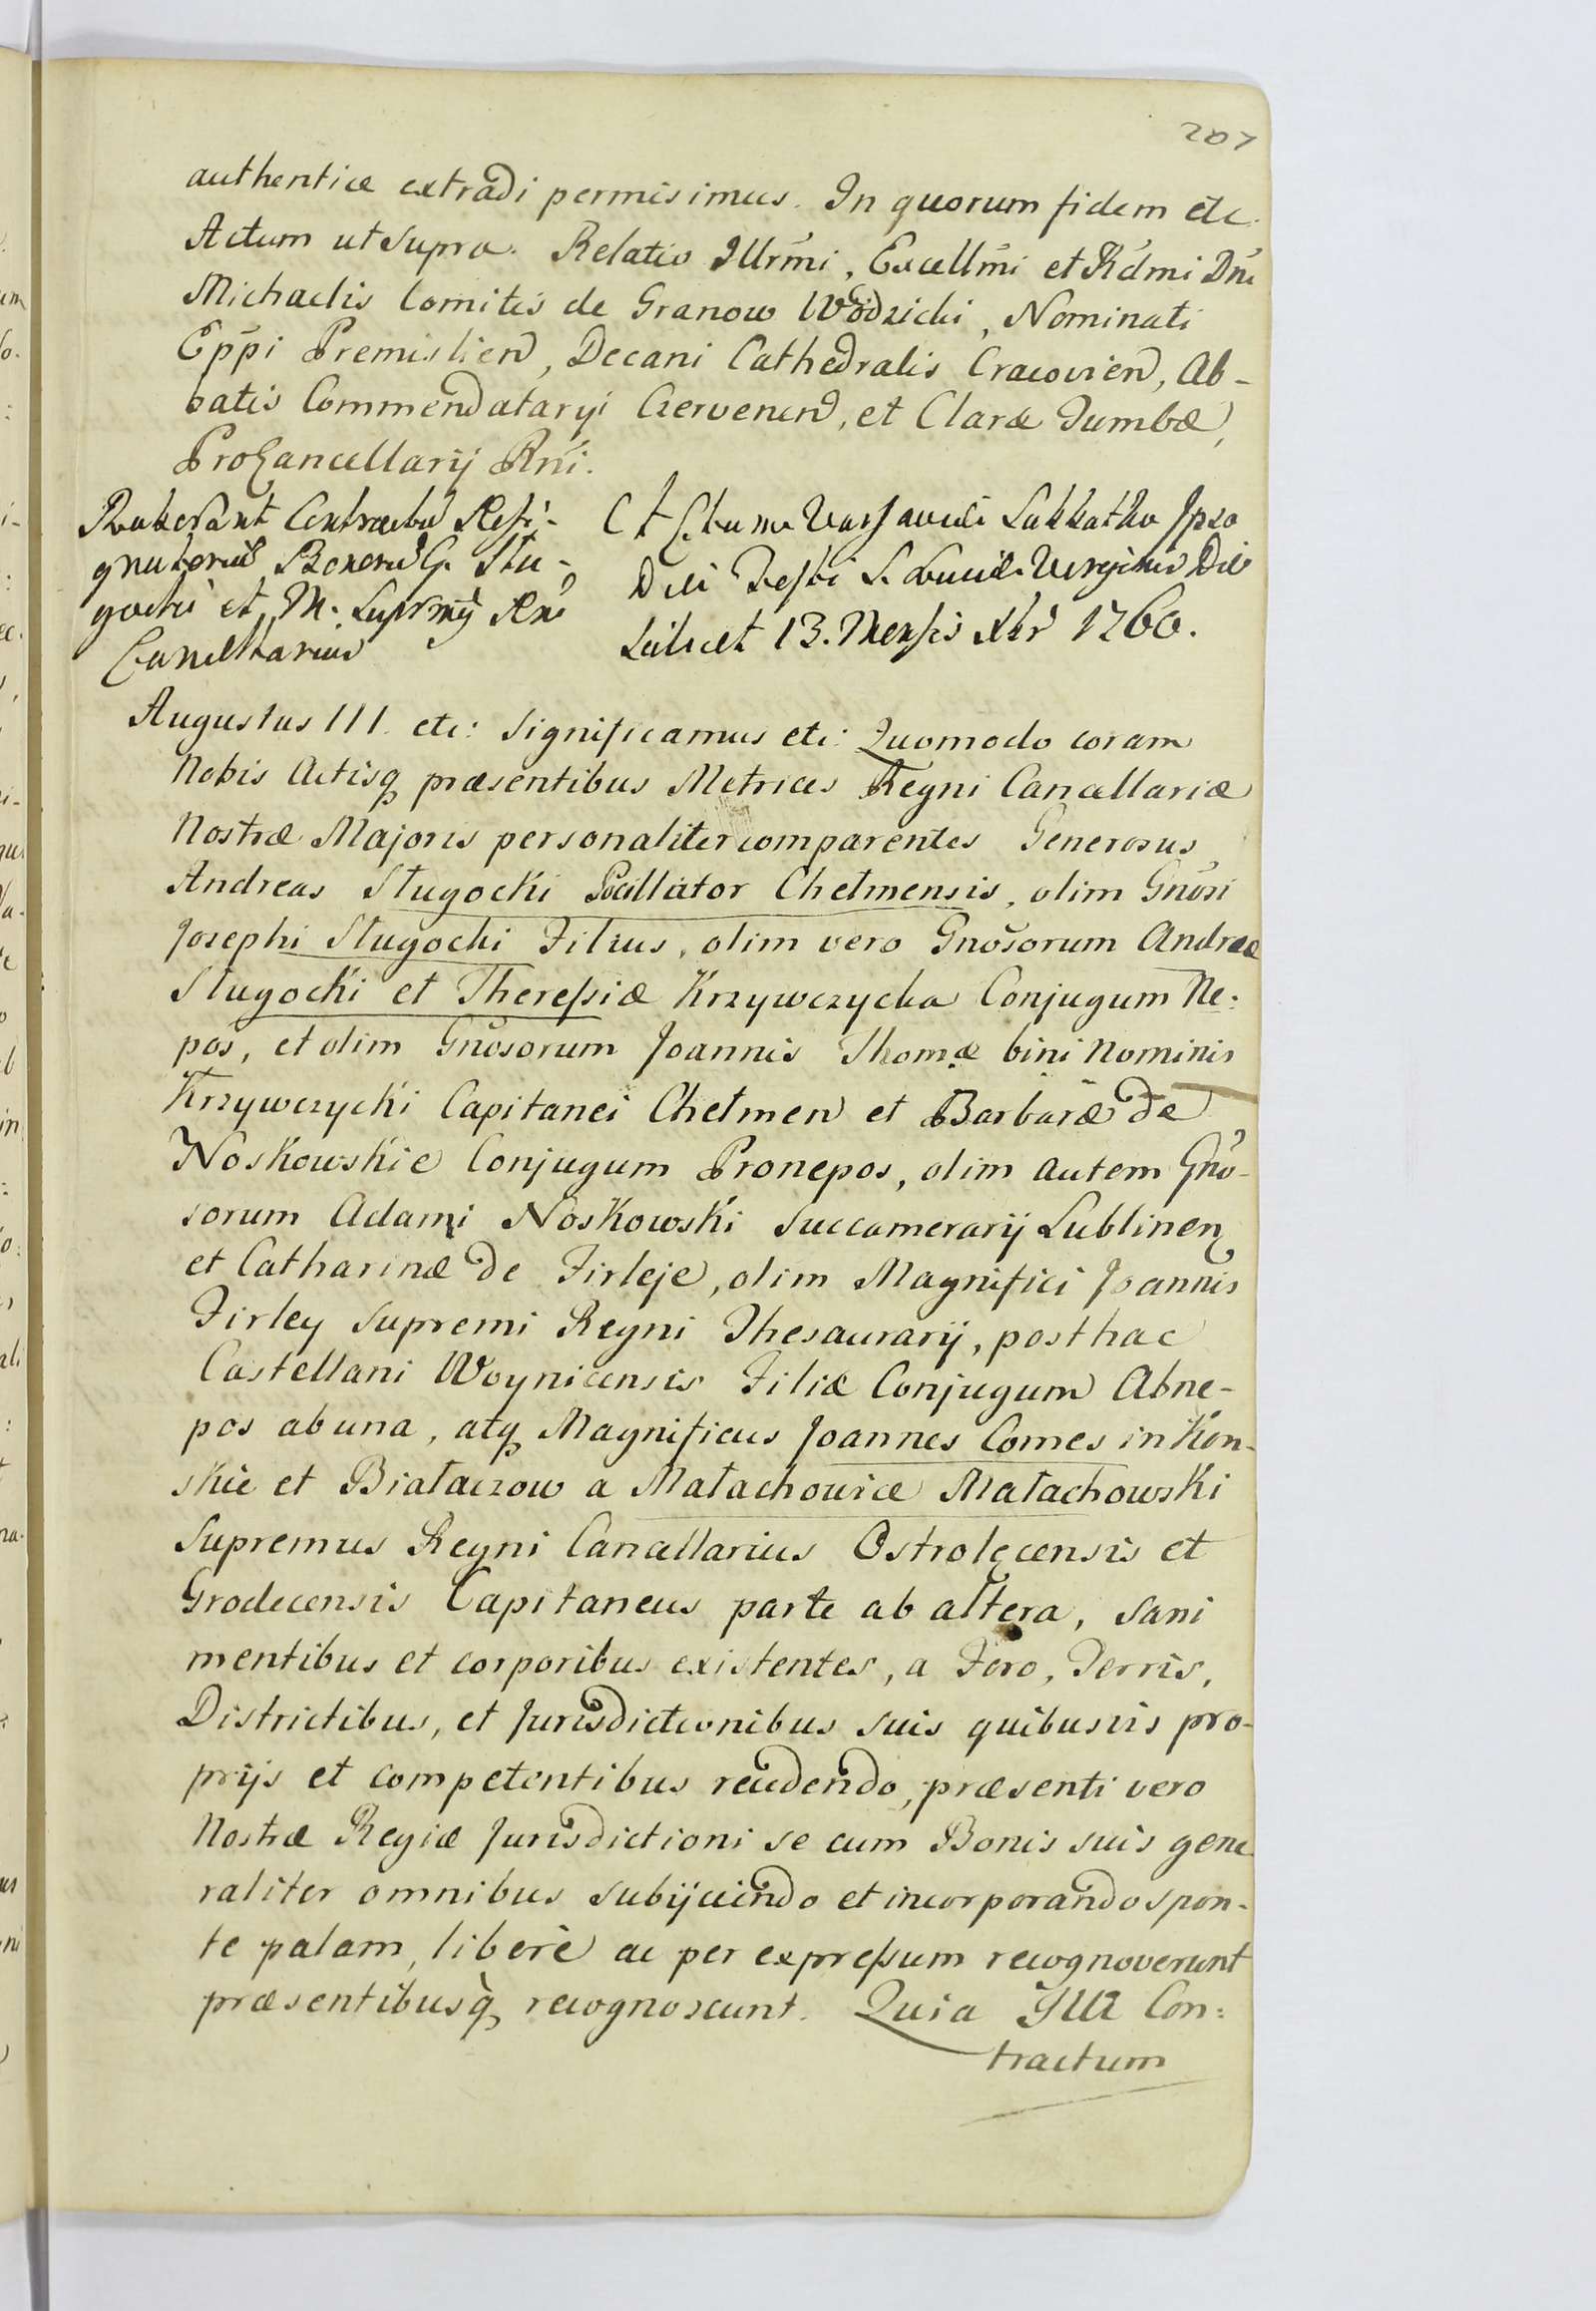 207
authenticæ extradi permisimus. In quorum fidem etc.
Actum ut supra. Relatio Illrm̄i, Excellm̄i et Rdm̄i Dn̄i
Michaelis Comitis de Granow Wodzicki, Nominati
Epp̄i Premislien, Decani Cathedralis Cracovien, Ab-
batis Commendatarji Czervenen, et Claræ Tumbæ,
ProCancellarij Rn̄i.
Roborant Contractū Resi-
gnatoriū Bonorū G. Stu-
gocki et M. Suprm̄ȳ Rn̄i
Cancellarius
Actum Varsaviæ Sabbatho Ipso
Die Festi S. Luciæ Virginis Die
Scilicet 13. Mensis Xbr 1760.
Augustus III. etc: Significamus etc: Quomodo coram
Nobis Actisq præsentibus Metrices Regni Cancellariæ
Nostræ Majoris personaliter comparentes Generosus
Andreas Stugocki Pocillator Chelmensis, olim Gn̄osi
Josephi Stugocki Filius, olim vero Gn̄osorum Andreæ
Stugocki et Theressiæ Krzywczycka Conjugum Ne:
pos, et olim Gn̄osorum Joannis Thomæ bini Nominis
Krzywczycki Capitanei Chelmen et Barbaræ de
Noskowskie Conjugum Pronepos, olim autem Gn̄o-
sorum Adami Noskowski Succamerarij Lublinen
et Catharinæ de Firleje, olim Magnifici Joannis
Firley Supremi Regni Thesaurarij, posthac
Castellani Woynicensis Filiæ Conjugum Abne-
pos ab una, atq Magnificus Joannes Comes in Kon-
skie et Bialaczow a Malachowice Malachowski
Supremus Regni Cancellarius Ostrolęcensis et
Grodecensis Capitaneus parte ab altera, sani
mentibus et corporibus existentes, a Foro, Terris,
Districtibus, et Jurisdictionibus suis quibusvis pro-
prijs et competentibus recedendo, præsenti vero
Nostræ Regiæ Jurisdictioni se cum Bonis suis gene
raliter omnibus subijciendo et incorporando spon-
te palam, liberè ac per expressum recognoverunt
præsentibusq̀ recognoscunt. Quia Illi Con:
tractum